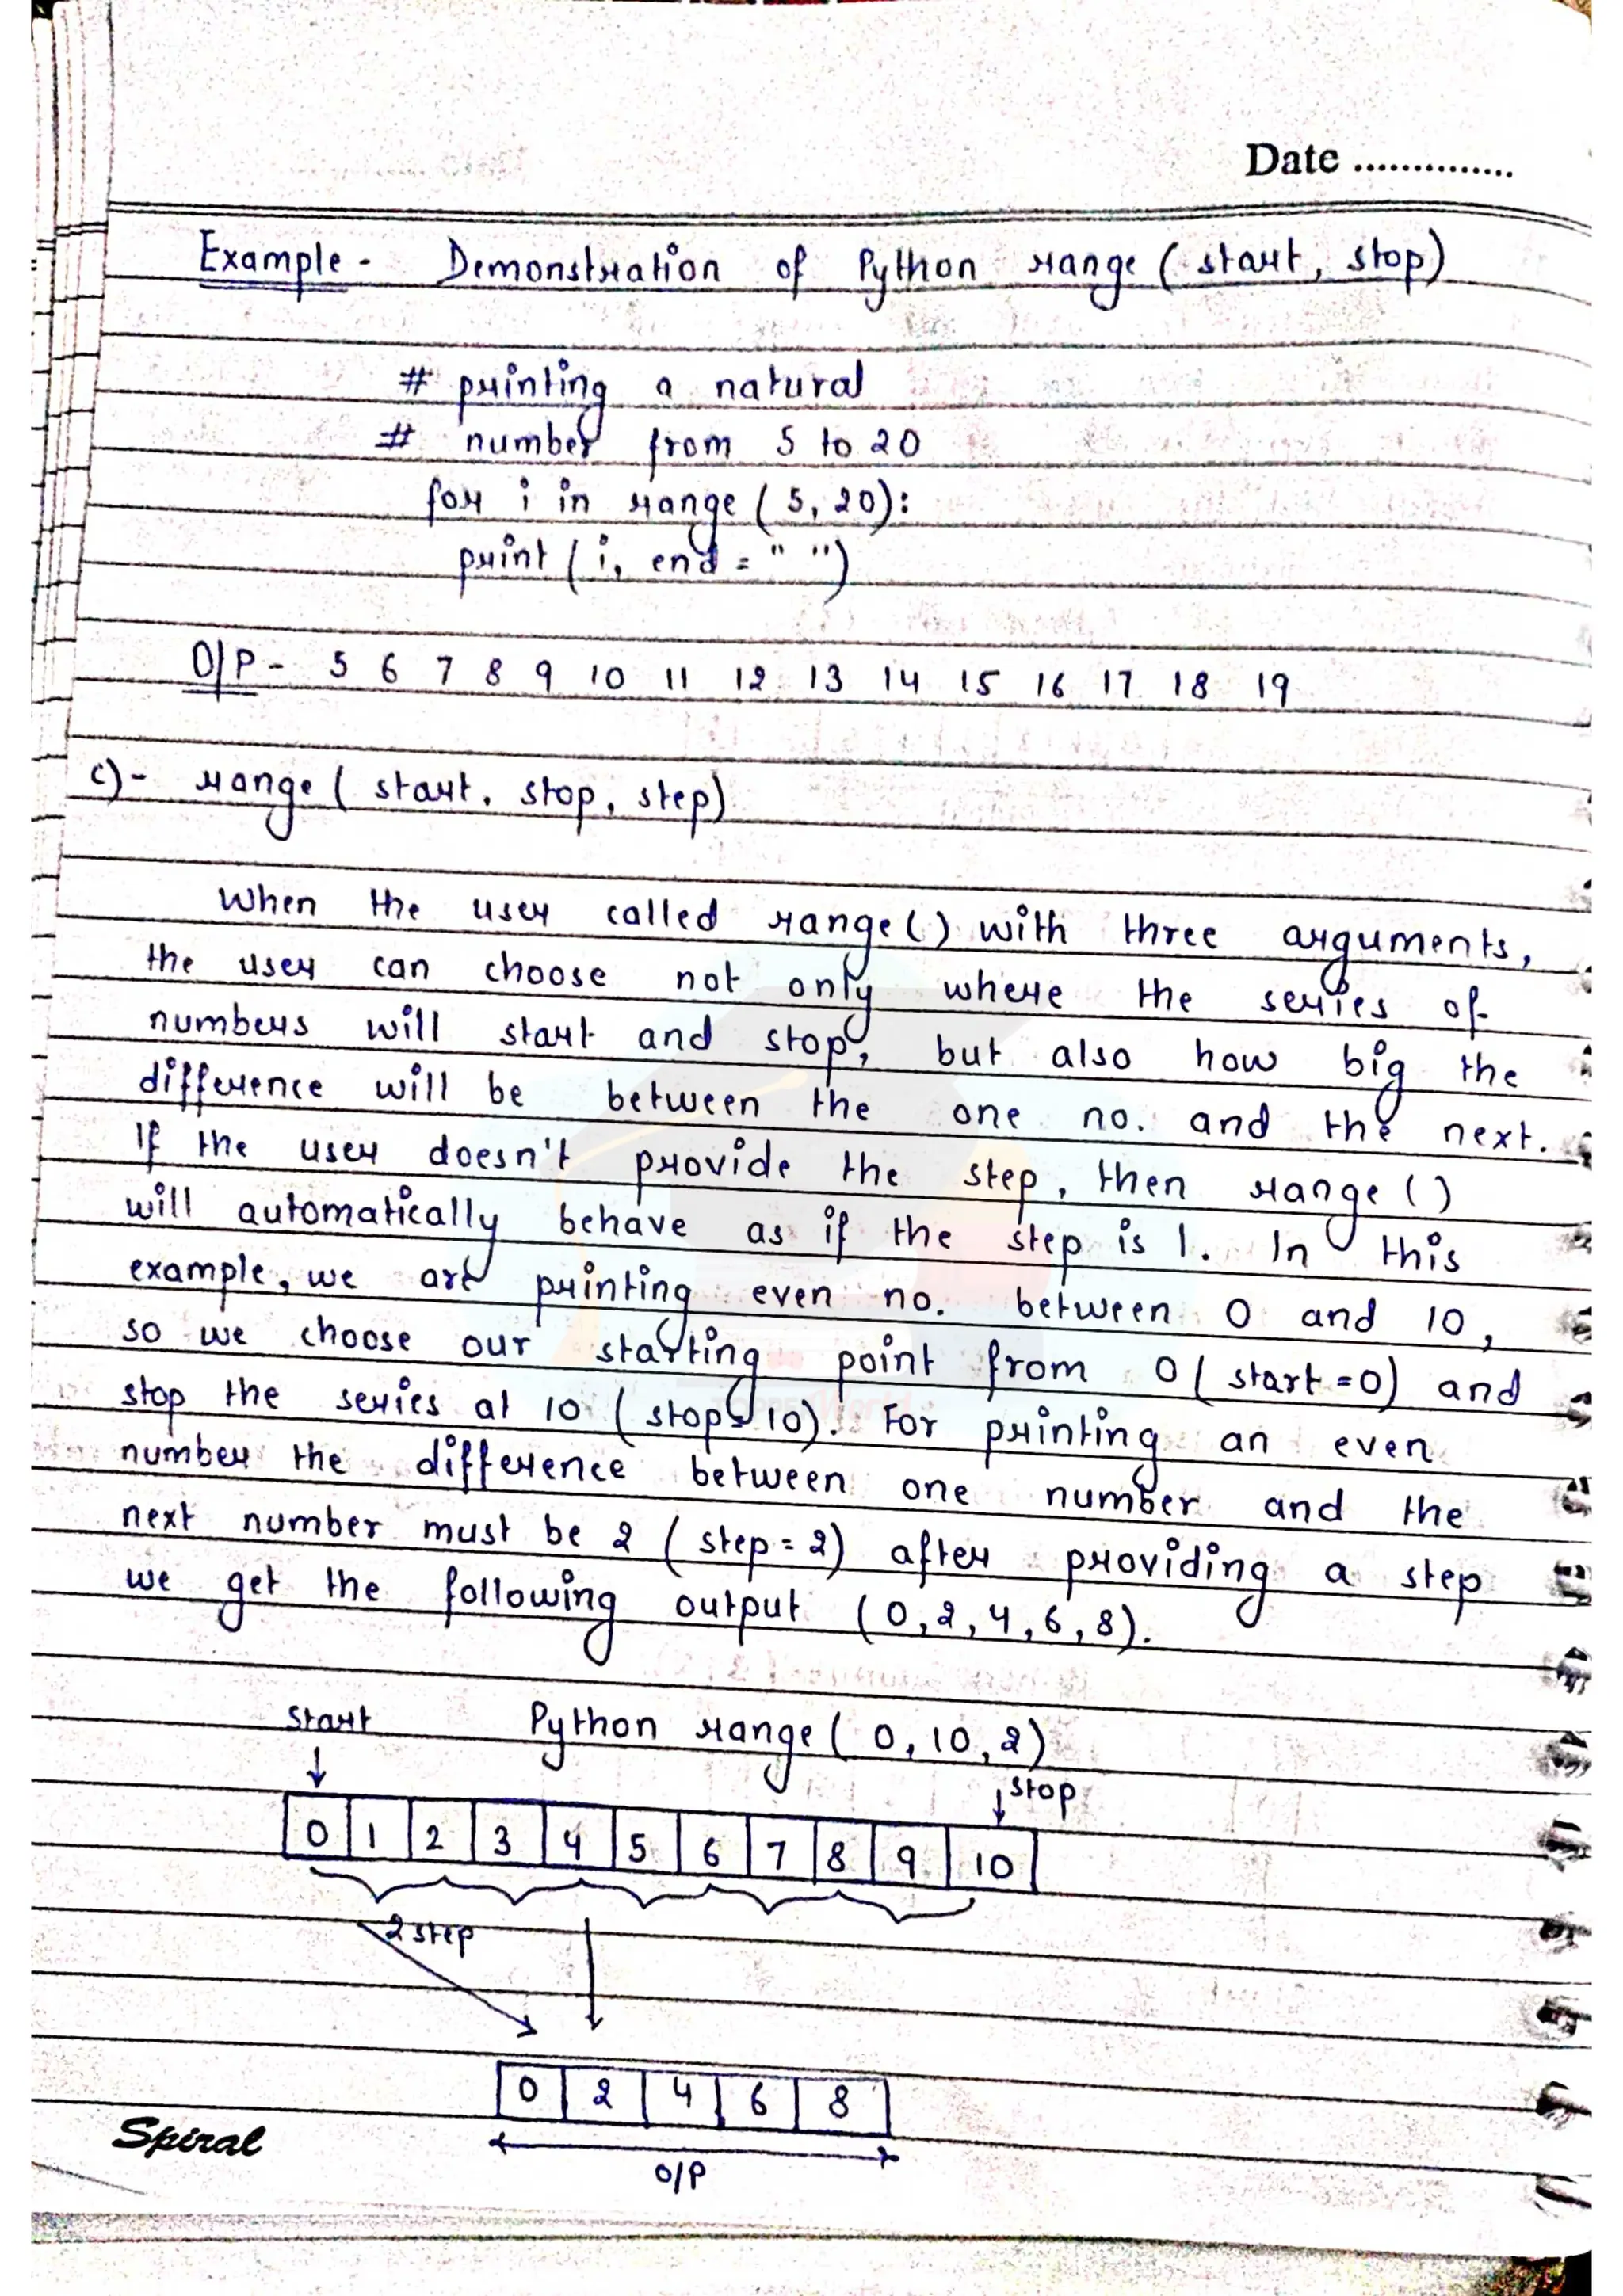 Date ..............
Example - Demonstration of Python range (start, stop)
# printing a natural
# number from 5 to 20
for i in range (5, 20):
print (i, end = " ")
O/P - 5 6 7 8 9 10 11 12 13 14 15 16 17 18 19
c)- range ( start, stop, step)
When the user called range() with three arguments,
the user can choose not only where the series of
numbers will start and stop, but also how big the
difference will be between the one no. and the next.
If the user doesn't provide the step, then range ()
will automatically behave as if the step is 1. In this
example, we are printing even no. between 0 and 10,
so we choose our starting point from 0 ( start = 0) and
stop the series at 10 ( stop = 10). For printing an even
number the difference between one number and the
next number must be 2 ( step = 2) after providing a step
we get the following output (0, 2, 4, 6, 8).
start Python range ( 0, 10, 2)
stop
0 1 2 3 4 5 6 7 8 9 10
2 step
0 2 4 6 8
Spiral
O/P